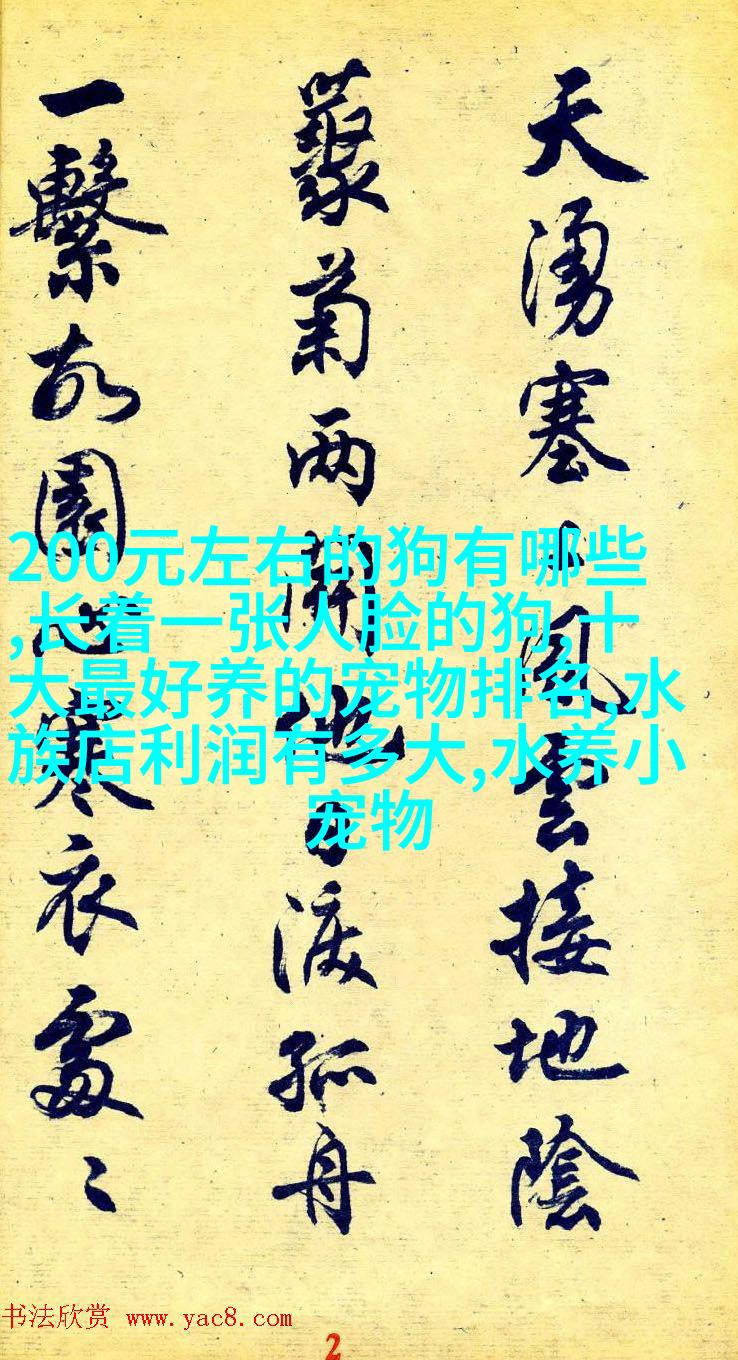 天湧塞上風雲接地陰
叢菊两開他日淚孤舟
一繫故園心寒衣處〻
200元左右的狗有哪些
,长着一张人脸的狗,十
大最好养的宠物排名,水
族店利润有多大,水养小
宠物
书法欣赏 www.yac8.com
2